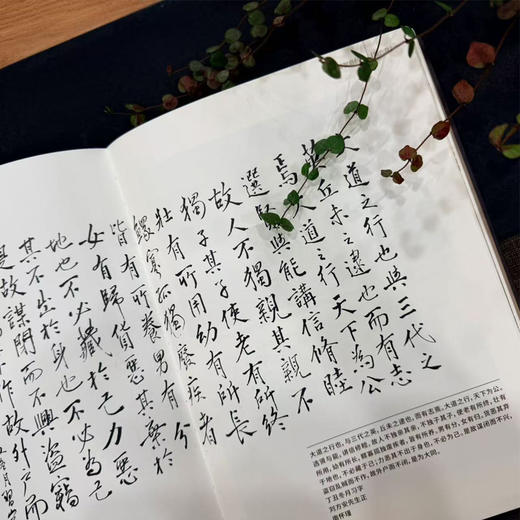 大道之行也與三代之
英丘未之逮也而有志
焉大道之行天下為公
選賢與能講信脩睦
故人不獨親其親不
獨子其子使老有所終
壯有所用幼有所長
鰥寡孤獨廢疾者
皆有所養男有分
女有歸貨惡其棄於
地也不必藏於己力惡
其不出於身也不必為己
是故謀閉而不興盜竊
作故外戶而
大道之行也，与三代之英，丘未之逮也，而有志焉。大道之行，天下为公。
选贤与能，讲信修睦，故人不独亲其亲，不独子其子，使老有所终，壮有
所用，幼有所长，鳏寡孤独废疾者，皆有所养。男有分，女有归。货恶其弃
于地也，不必藏于己；力恶其不出于身也，不必为己。是故谋闭而不兴，
盗窃乱贼而不作，故外户而不闭，是为大同。
丁丑冬月习字
刘方安先生正
南怀瑾